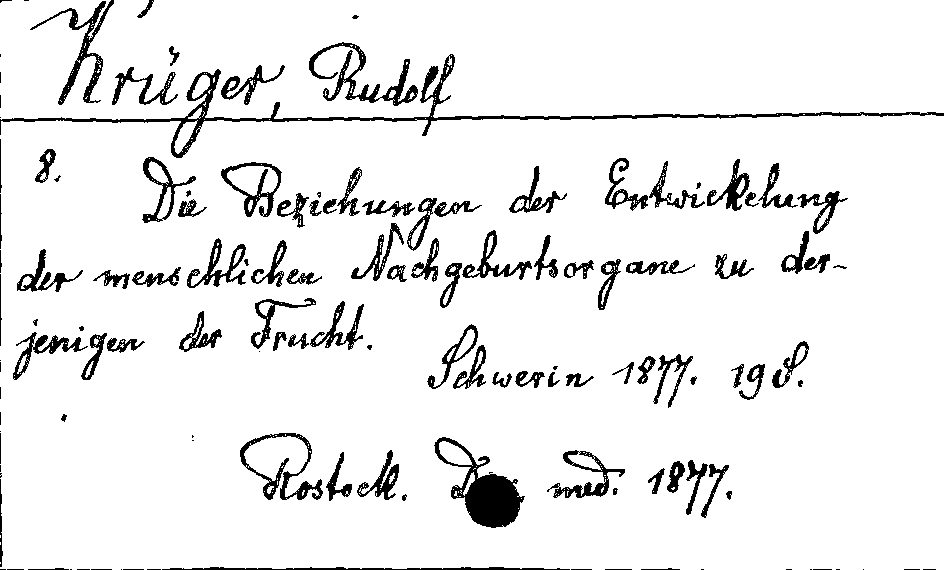 Krüger, Rudolf
8.
Die Beziehungen der Entwickelung
der menschlichen Nachgeburtsorgane zu der-
jenigen der Frucht.
Schwerin 1877. 19 S.
Rostock. med. 1877.